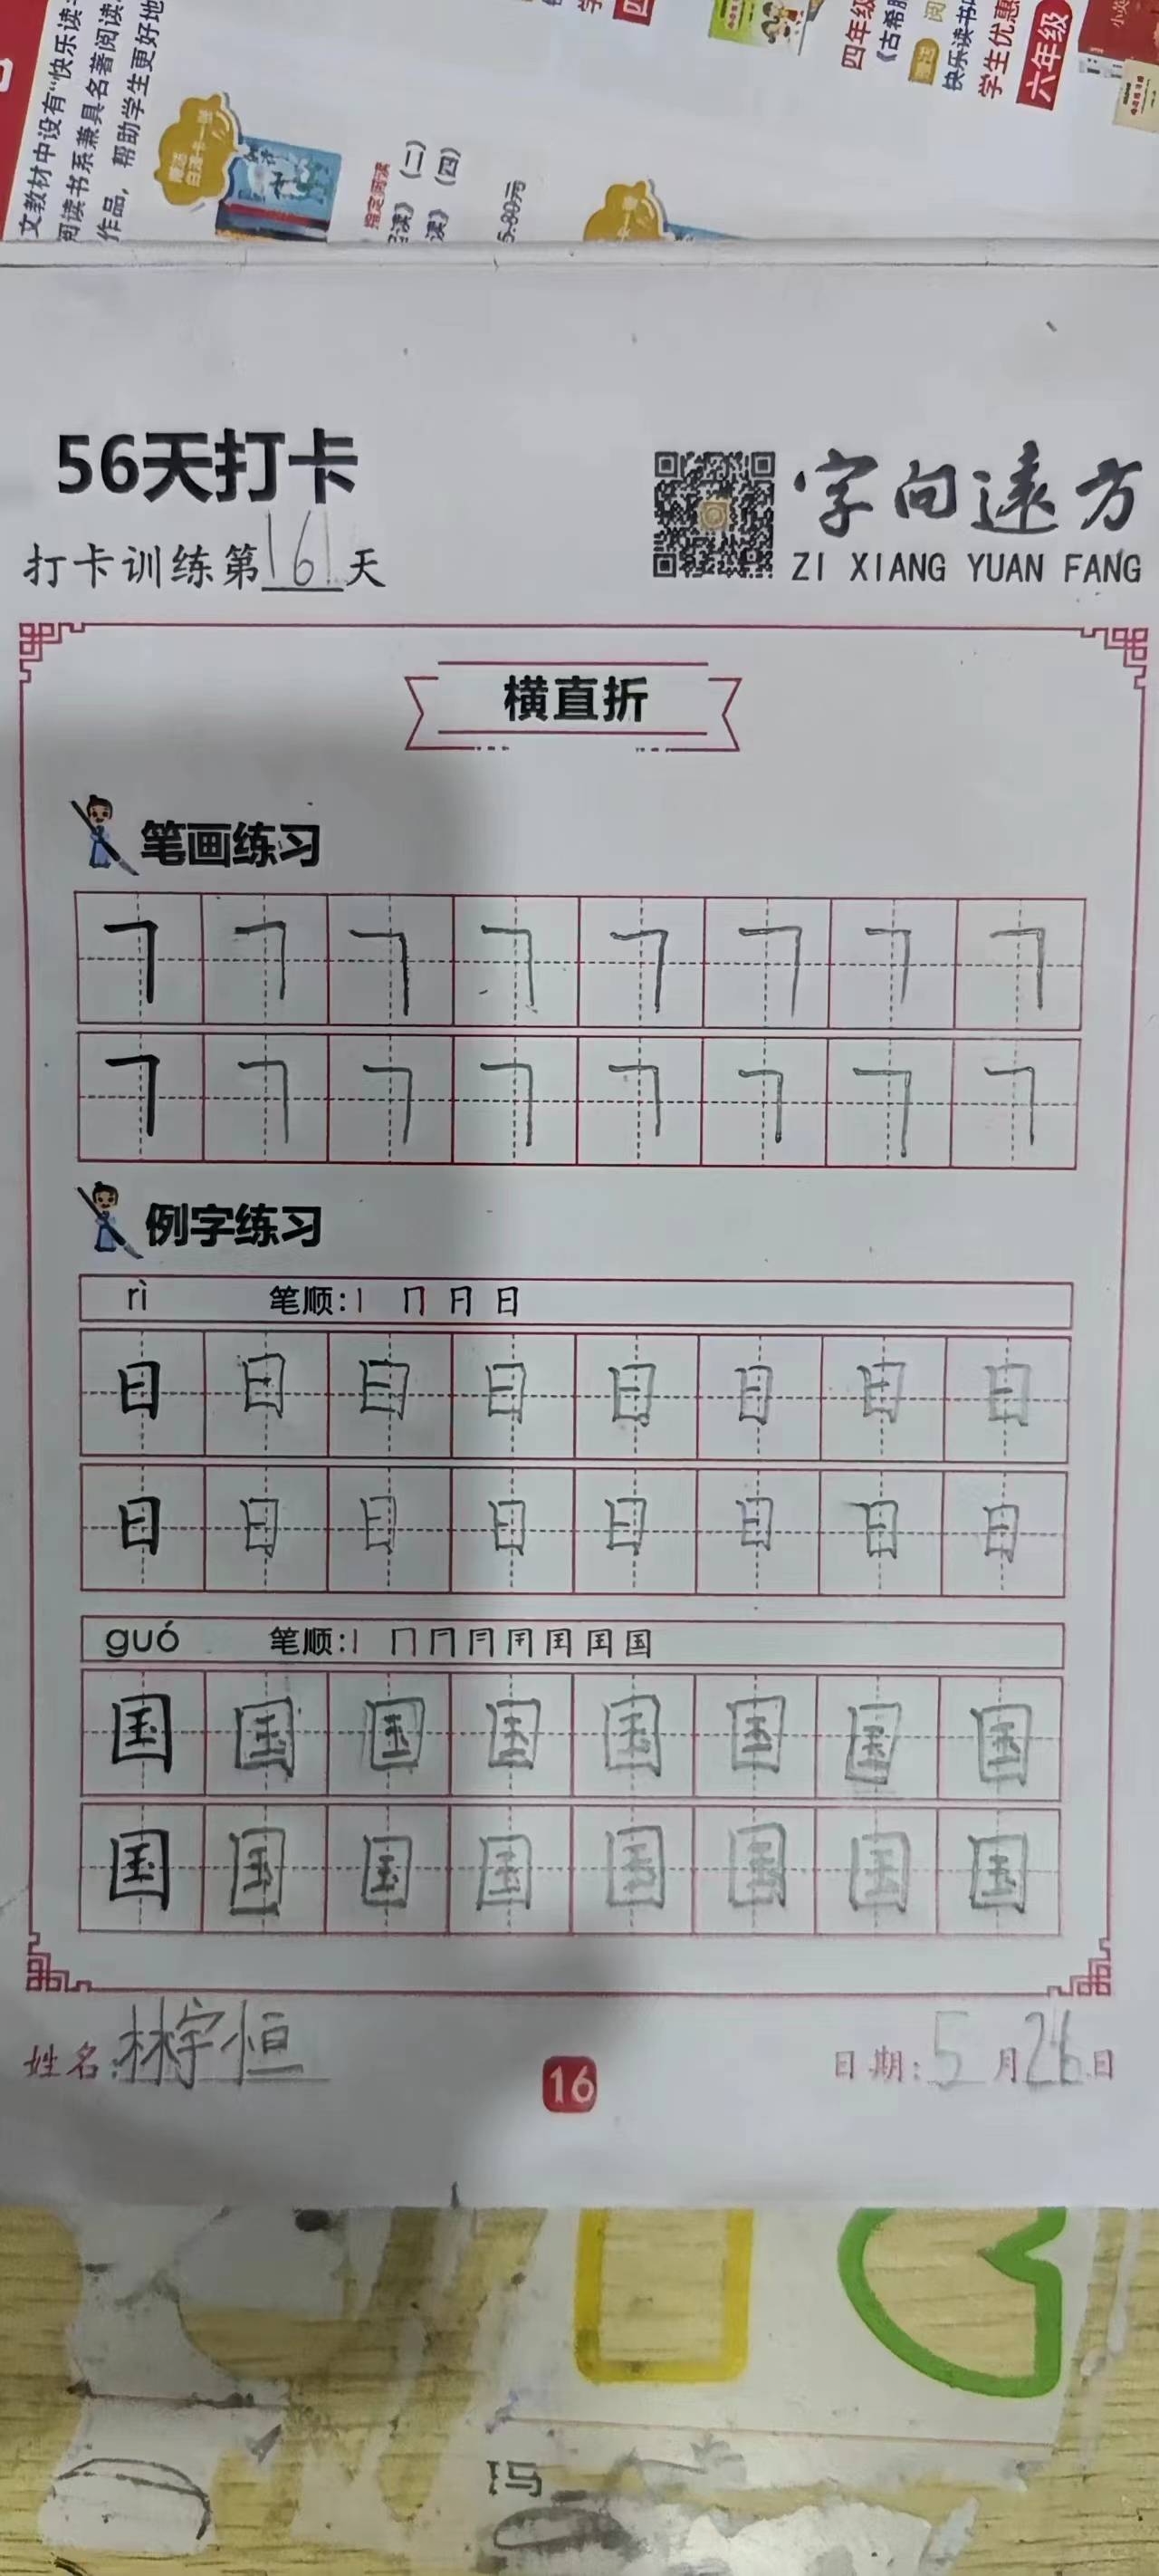 文教材中设有“快乐读
阅读书系兼具名著阅读
作品，帮助学生更好地
指定阅读
读》（二）
读》（四）
5.80元
四年级
《古希腊
快乐读书吧
学生优惠
六年级
56天打卡
打卡训练第16天
字向遠方
ZI XIANG YUAN FANG
横直折
笔画练习
㇕ ㇕ ㇕ ㇕ ㇕ ㇕ ㇕ ㇕
㇕ ㇕ ㇕ ㇕ ㇕ ㇕ ㇕ ㇕
例字练习
rì 笔顺:丨 冂 月 日
日 日 日 日 日 日 日 日
日 日 日 日 日 日 日 日
guó 笔顺:丨 冂 国
国 国 国 国 国 国 国 国
国 国 国 国 国 国 国 国
姓名:林宇恒
16
日期:5月26日